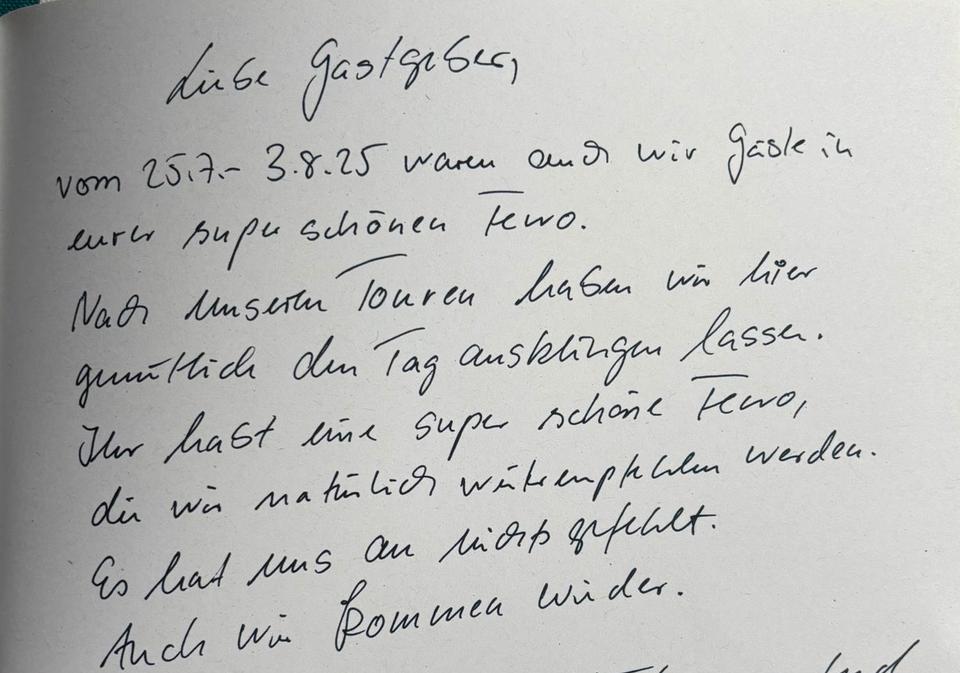 Liebe Gastgeber,
vom 25.7.- 3.8.25 waren auch wir Gäste in
eurer super schönen Fewo.
Nach unseren Touren haben wir hier
gemütlich den Tag ausklingen lassen.
Ihr habt eine super schöne Fewo,
die wir natürlich weiterempfehlen werden.
Es hat uns an nichts gefehlt.
Auch wir kommen wieder.